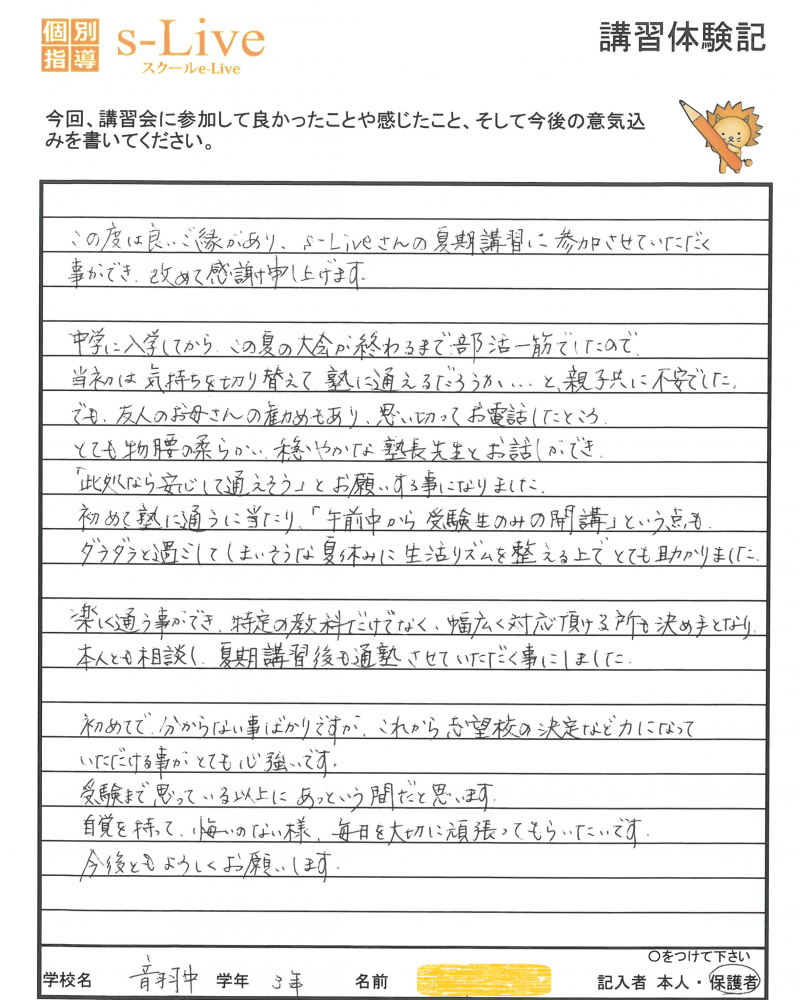 個別指導
s-Live
スクールe-Live
講習体験記
今回、講習会に参加して良かったことや感じたこと、そして今後の意気込
みを書いてください。
この度は良いご縁があり、s-Liveさんの夏期講習に参加させていただく
事ができ、改めて感謝申し上げます。
中学に入学してから、この夏の大会が終わるまで部活一筋でしたので、
当初は気持ちを切り替えて塾に通えるだろうか...と、親子共に不安でした。
でも、友人のお母さんの勧めもあり、思い切ってお電話したところ、
とても物腰の柔らかい、穏やかな塾長先生とお話しができ、
「此処なら安心して通えそう」とお願いする事になりました。
初めて塾に通うに当たり、「午前中から受験生のみの開講」という点も、
ダラダラと過ごしてしまいそうな夏休みに生活リズムを整える上でとても助かりました。
楽しく通う事ができ、特定の教科だけでなく、幅広く対応頂ける所も決め手となり、
本人とも相談し、夏期講習後も通塾させていただく事にしました。
初めてで、分からない事ばかりですが、これから志望校の決定など力になって
いただける事がとても心強いです。
受験まで思っている以上にあっという間だと思います。
自覚を持って、悔いのない様、毎日を大切に頑張ってもらいたいです。
今後ともよろしくお願いします。
〇をつけて下さい
学校名 音羽中 学年 3年 名前 記入者 本人・保護者